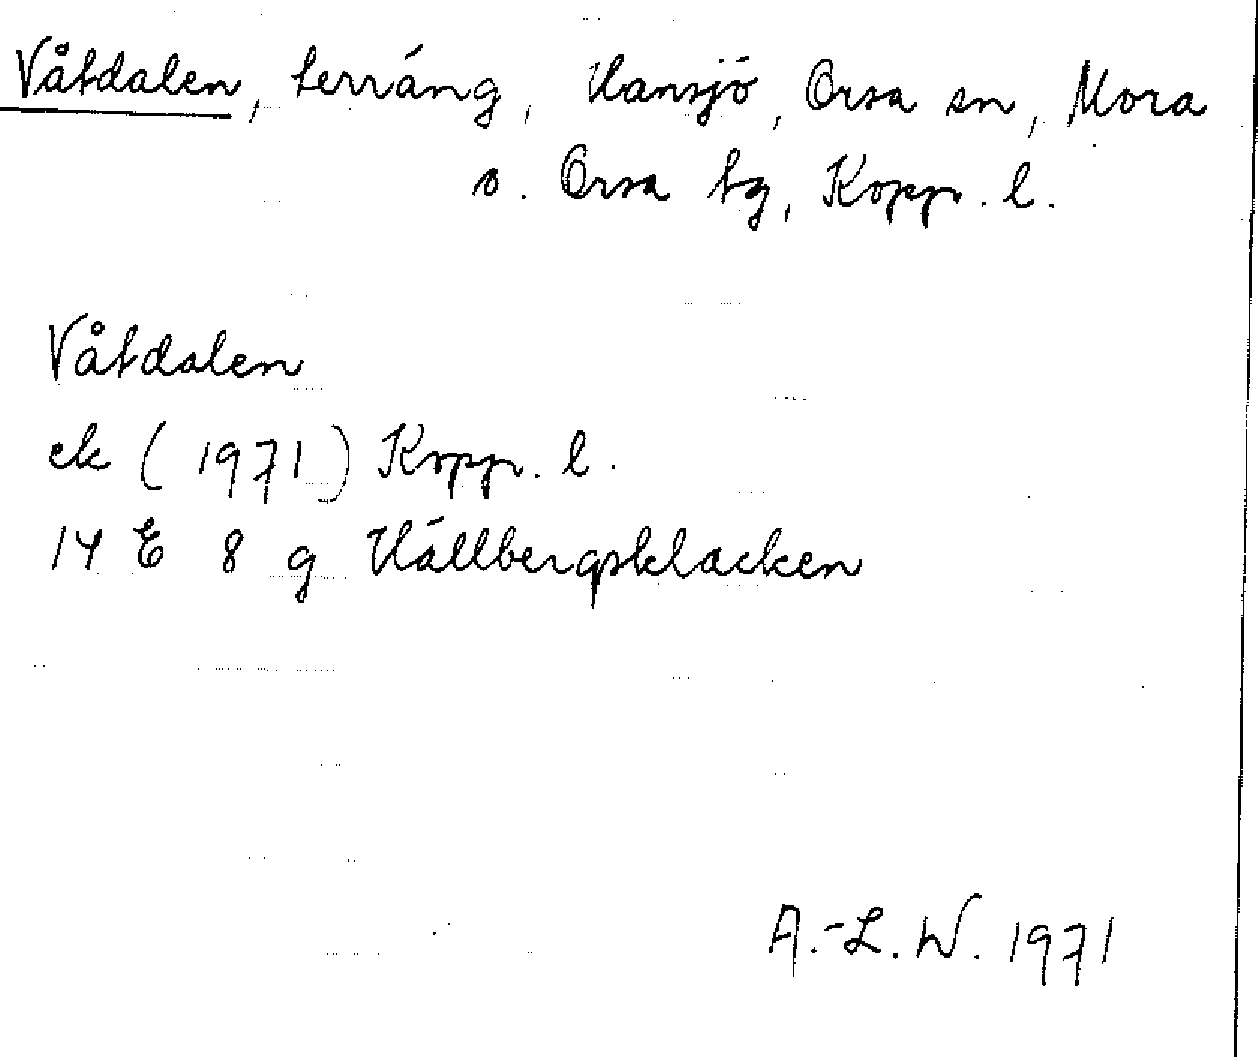 Våtdalen, terräng, Hansjö, Orsa sn, Mora
o. Orsa tg, Kopp. l.
Våtdalen
ek (1971) Kopp. l.
14 E 8 g Hållbergsklacken
A.-L. W. 1971